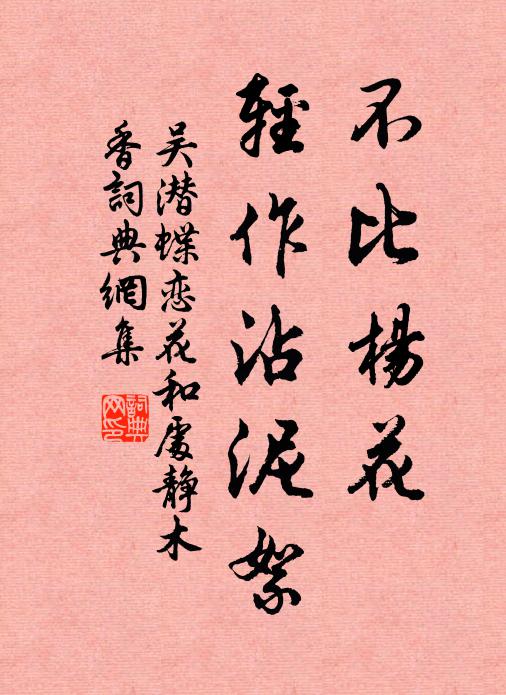 不比楊花
輕作沾泥絮
吴潜蝶恋花和處静木
香詞典網集
詞典网印